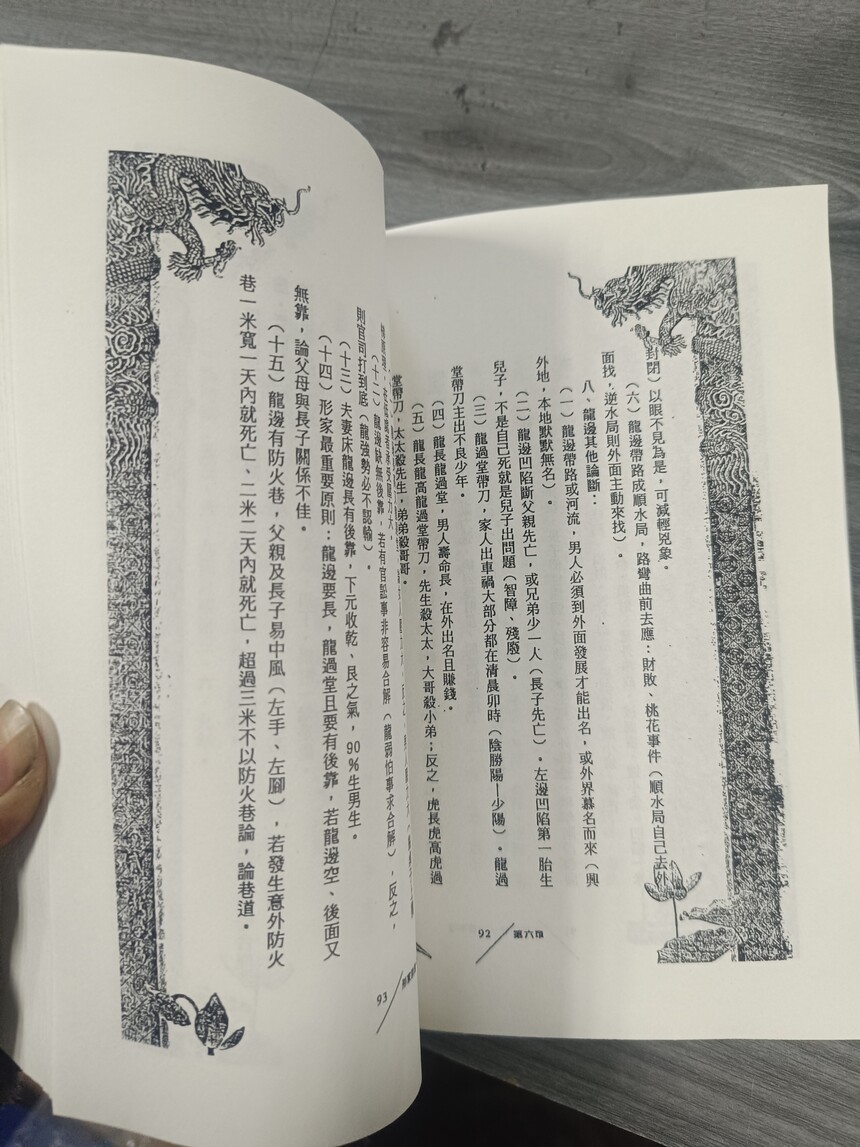 封閉）以眼不見為是，可減輕兇象。
（六）龍邊帶路成順水局，路彎曲前去應：財敗、桃花事件（順水局自己去外
面找，逆水局則外面主動來找）。
八、龍邊其他論斷：
（一）龍邊帶路或河流，男人必須到外面發展才能出名，或外界慕名而來（興
外地，本地默默無名）。
（二）龍邊凹陷斷父親先亡，或兄弟少一人（長子先亡）。左邊凹陷第一胎生
兒子，不是自己死就是兒子出問題（智障、殘廢）。
（三）龍過堂帶刀，家人出車禍大部分都在清晨卯時（陰勝陽—少陽）。龍過
堂帶刀主出不良少年。
（四）龍長龍過堂，男人壽命長，在外出名且賺錢。
（五）龍長龍高龍過堂帶刀，先生殺太太，大哥殺小弟；反之，虎長虎高虎過
堂帶刀，太太殺先生，弟弟殺哥哥。
92
第六章
（十二）龍邊缺無後靠，若有官訟事非容易合解（龍弱怕事求合解），反之，
則官司打到底（龍強勢必不認輸）。
（十三）夫妻床龍邊長有後靠，下元收乾、艮之氣，90%生男生。
（十四）形家最重要原則：龍邊要長，龍過堂且要有後靠，若龍邊空、後面又
無靠，論父母與長子關係不佳。
（十五）龍邊有防火巷，父親及長子易中風（左手、左腳），若發生意外防火
巷一米寬一天內就死亡、二米二天內就死亡，超過三米不以防火巷論，論巷道。
93